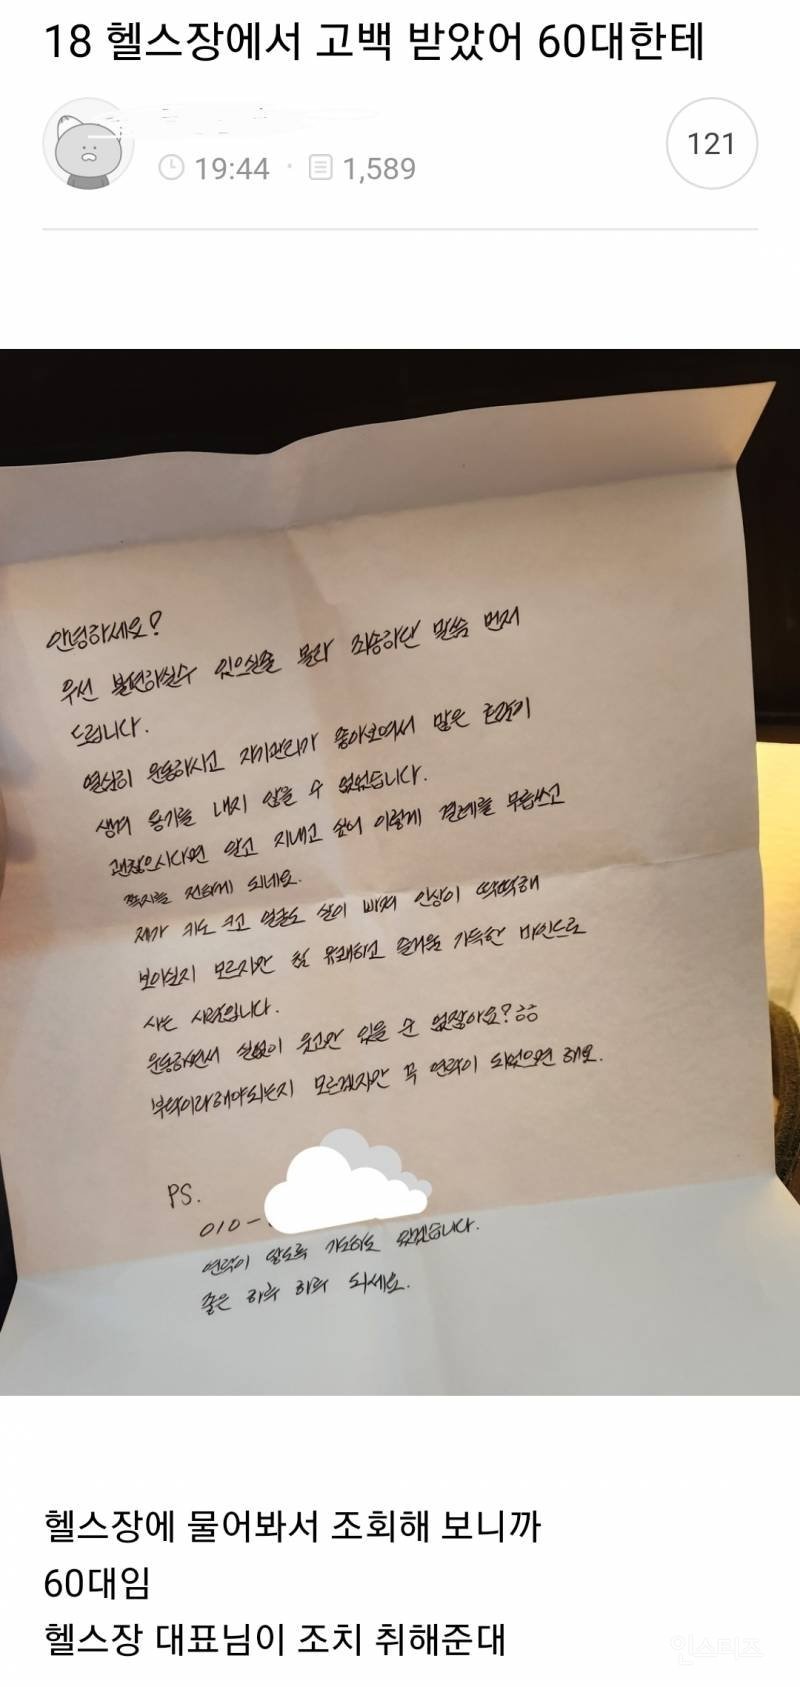 18 헬스장에서 고백 받았어 60대한테
19:44 · 1,589
121
안녕하세요?
우선 불편하실수 있으실줄 몰라 죄송하단 말씀 먼저
드립니다.
열심히 운동하시고 자기관리가 좋아보여서 많은 호감이
생겨 용기를 내지 않을 수 없었습니다.
괜찮으시다면 알고 지내고 싶어 이렇게 결례를 무릅쓰고
쪽지를 전하게 되네요.
제가 키도 크고 얼굴도 살이 빠져 인상이 딱딱해
보이실지 모르지만 참 유쾌하고 즐거움 가득한 마인드로
사는 사람입니다.
운동하면서 실없이 웃고만 있을 순 없잖아요?ㅎㅎ
부탁이라해야되는지 모르겠지만 꼭 연락이 되었으면 해요.
PS.
010-
연락이 닿도록 기도하고 있겠습니다.
좋은 하루 하루 되세요.
헬스장에 물어봐서 조회해 보니까
60대임
헬스장 대표님이 조치 취해준대
인스티즈